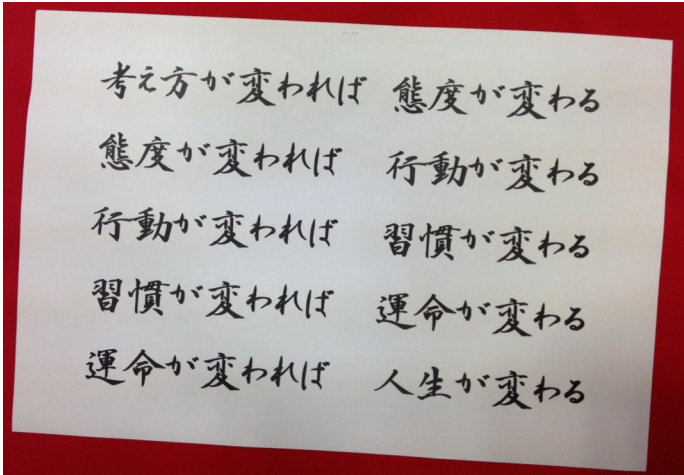 考え方が変われば 態度が変わる
態度が変われば 行動が変わる
行動が変われば 習慣が変わる
習慣が変われば 運命が変わる
運命が変われば 人生が変わる